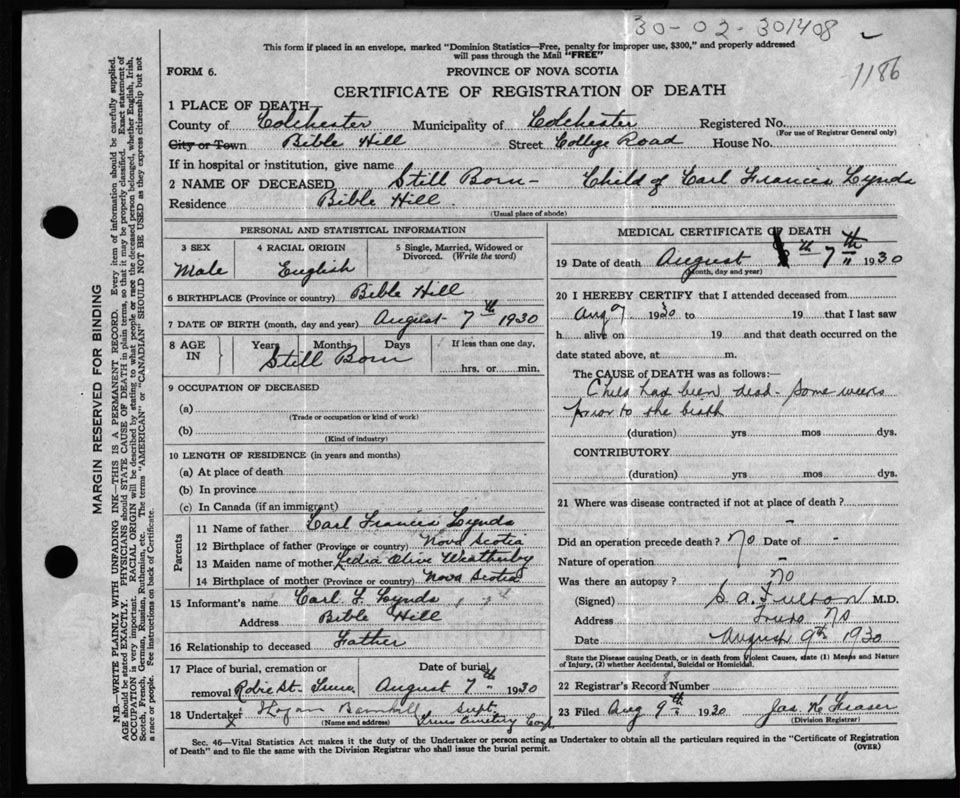 30-02-301408
1186
This form if placed in an envelope, marked "Dominion Statistics—Free, penalty for improper use, $300," and properly addressed
will pass through the Mail "FREE"
FORM 6.
PROVINCE OF NOVA SCOTIA
CERTIFICATE OF REGISTRATION OF DEATH
1 PLACE OF DEATH—
County of Colchester Municipality of Colchester Registered No.
(For use of Registrar General only)
City or Town Bible Hill Street College Road House No.
If in hospital or institution, give name
2 NAME OF DECEASED Still Born - Child of Carl Francis Lynds
Residence Bible Hill.
(Usual place of abode)
PERSONAL AND STATISTICAL INFORMATION
3 SEX 4 RACIAL ORIGIN 5 Single, Married, Widowed or
Divorced. (Write the word)
Male English
6 BIRTHPLACE (Province or country) Bible Hill
7 DATE OF BIRTH (month, day and year) August 7th 1930
8 AGE IN Years Months Days If less than one day,
Still Born
hrs. or min.
9 OCCUPATION OF DECEASED
(a)
(Trade or occupation or kind of work)
(b)
(Kind of industry)
10 LENGTH OF RESIDENCE (in years and months)
(a) At place of death
(b) In province
(c) In Canada (if an immigrant)
Parents
11 Name of father Carl Francis Lynds
12 Birthplace of father (Province or country) Nova Scotia
13 Maiden name of mother Olive Weatherby
14 Birthplace of mother (Province or country) Nova Scotia
15 Informant's name Carl F. Lynds
Address Bible Hill
16 Relationship to deceased Father
17 Place of burial, cremation or Date of burial
removal Robie St. Truro August 7th 1930
18 Undertaker Supt.
(Name and address) Truro Cemetery
MEDICAL CERTIFICATE OF DEATH
19 Date of death August 7th 1930
(Month, day and year)
20 I HEREBY CERTIFY that I attended deceased from
Aug 7 1930 to 19 that I last saw
h alive on 19 and that death occurred on the
date stated above, at m.
The CAUSE of DEATH was as follows:—
Child had been dead - some weeks
prior to the birth
(duration) yrs mos dys.
CONTRIBUTORY
(duration) yrs mos dys.
21 Where was disease contracted if not at place of death?
-
Did an operation precede death? No Date of -
Nature of operation -
Was there an autopsy? no
(Signed) S. A. Fulton M.D.
Address Truro NS
Date August 9th 1930
State the Disease causing Death, or in death from Violent Causes, state (1) Means and Nature
of Injury, (2) whether Accidental, Suicidal or Homicidal.
22 Registrar's Record Number
23 Filed Aug 9th 1930 Jas. K. Fraser
(Division Registrar)
Sec. 46—Vital Statistics Act makes it the duty of the Undertaker or person acting as Undertaker to obtain all the particulars required in the "Certificate of Registration
of Death" and to file the same with the Division Registrar who shall issue the burial permit.
(OVER)
MARGIN RESERVED FOR BINDING
N.B.—WRITE PLAINLY WITH UNFADING INK—THIS IS A PERMANENT RECORD. Every item of information should be carefully supplied.
AGE should be stated EXACTLY. PHYSICIANS should STATE CAUSE OF DEATH in plain terms, so that it may be properly classified. Exact statement of
OCCUPATION is very important. RACIAL ORIGIN will be described by stating to what people or race the deceased person belonged, whether English, Irish,
Scotch, French, German, Russian, Ruthenian, etc. The terms "AMERICAN" or "CANADIAN" SHOULD NOT BE USED as they express citizenship but not
a race or people. See instructions on back of Certificate.